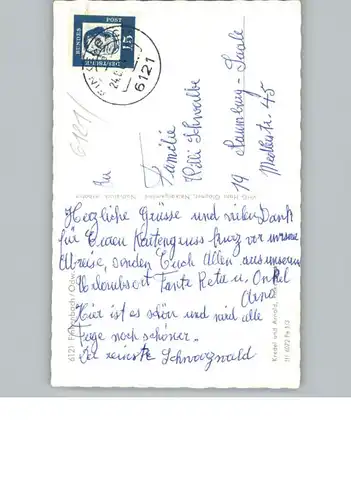 DEUTSCHE
BUNDES
POST
15
24.
6121
6121
An
Familie
Willi Schwalbe
19 Naumburg-Saale
Medlerstr. 45
Herzliche Grüsse und vielen Dank
für Euren Kartengruss kurz vor unsere
Abreise, senden Euch Allen aus unserem
Urlaubsort Tante Reta u. Onkel
Arno
Hier ist es schön und wird alle
Tage noch schöner"
Der reinste Schwarzwald
6121 Finkenbach/Odw.
Kredel und Arnold,